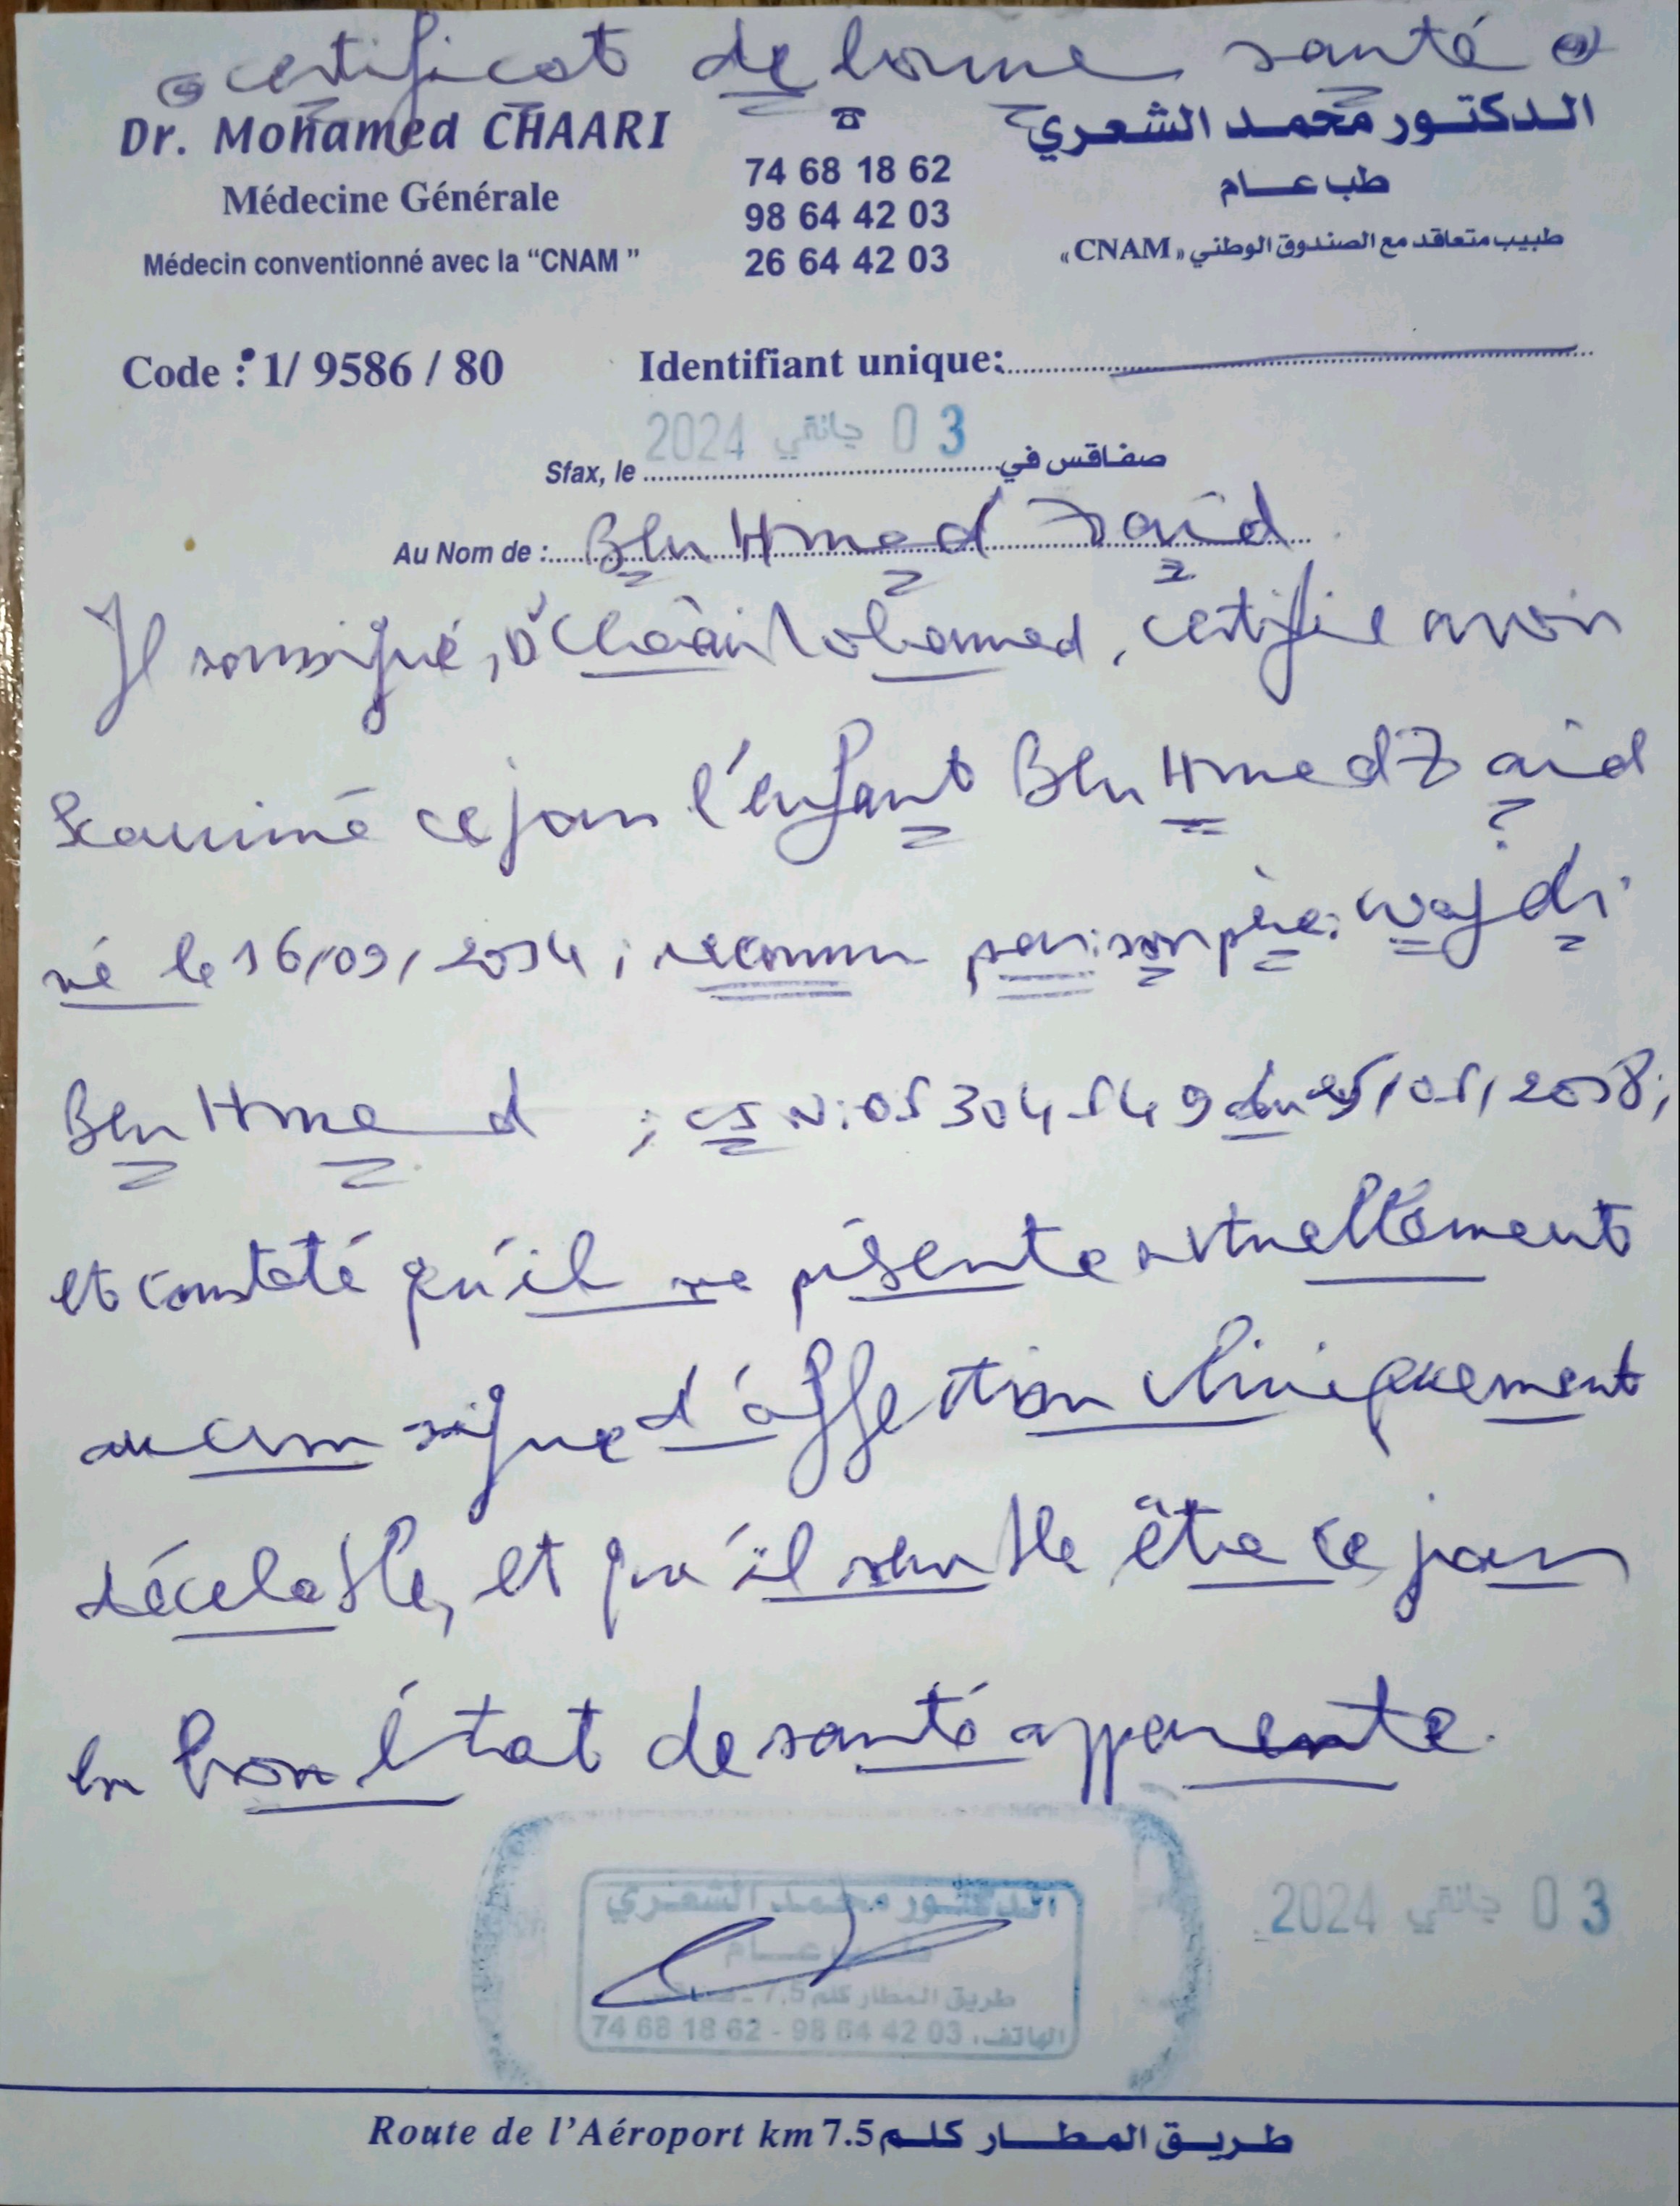 certificat de bonne santé
Dr. Mohamed CHAARI
Médecine Générale
Médecin conventionné avec la “CNAM ”
☎
74 68 18 62
98 64 42 03
26 64 42 03
الدكتور محمد الشعري
طب عام
طبيب متعاقد مع الصندوق الوطني «CNAM»
Code : 1/ 9586 / 80
Identifiant unique:
Sfax, le 03 جانفي 2024 صفاقس في
Au Nom de : Ben Hmed Zaid
Je soussigné, Dr Chaari Mohamed, certifie avoir
examiné ce jour l'enfant Ben Hmed Zaid
né le 16/09/2014 ; reconnu par : son père : Wajdi
Ben Hmed ; CIN : 05304549 du 25/05/2018 ;
et constaté qu'il ne présente actuellement
aucun signe d'affection cliniquement
décelable, et qu'il semble être ce jour
en bon état de santé apparente.
الدكتور محمد الشعري
طب عام
طريق المطار كلم 7.5 - صفاقس
الهاتف: 74 68 18 62 - 98 64 42 03
03 جانفي 2024
Route de l’Aéroport km 7.5 طريق المطار كلم